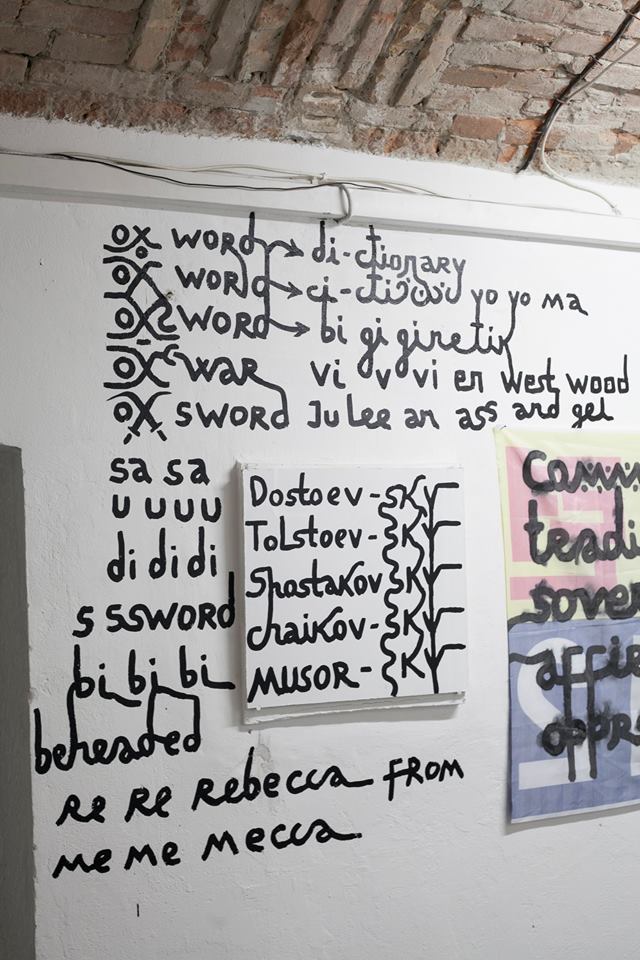 OX WORD di-ctionary
OX WORD ci-cti yo yo ma
OX WORD bi gi ginetik
OX WAR vi v vi en west wood
OX SWORD Ju Lee an ass and gel
sa sa
u u u u
di di di
s ssword
bi bi bi
beheaded
Re Re Rebecca FROM
Me Me Mecca
Dostoev-sky
Tolstoev-sky
Shostakov sky
chaikov-sky
MUSOR-sky
comm
teadi
sover
affie
oppr